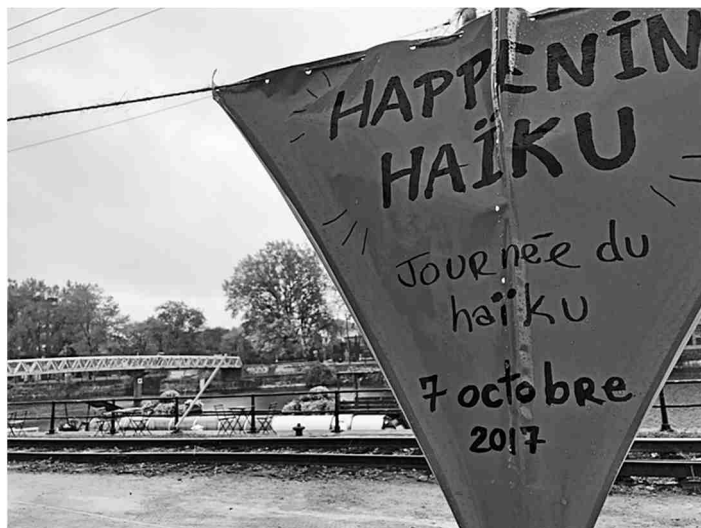 HAPPENIN
HAÏKU
Journée du
haïku
7 octobre
2017